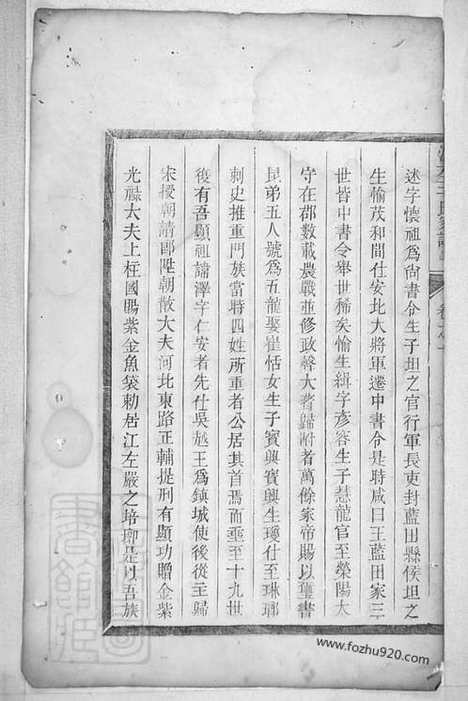 述字懷祖爲尚書令生子坦之官行軍長吏封藍田縣侯坦之
生愉茂和間仕安北大將軍遷中書令是時咸曰王藍田家三
世皆中書令舉世稀矣愉生緝字彥容生子慧龍官至榮陽太
守在郡數載農戰並修政聲大著歸附者萬餘家帝賜以璽書
昆弟五人號爲五龍娶崔恬女生子寶興寶興生瓊仕至琳瑯
刺史推重門族當時四姓所重者公居其首焉而垂至十九世
後有吾顯祖諱澤字仁安者先仕吳越王爲鎮城使後從主歸
宋授朝請郎陞朝散大夫河北東路正輔提刑有顯功贈金紫
光祿大夫上柱國賜紫金魚袋勅居江左嚴之培郭是以吾族
王氏宗譜
卷之一
www.fozhu920.com